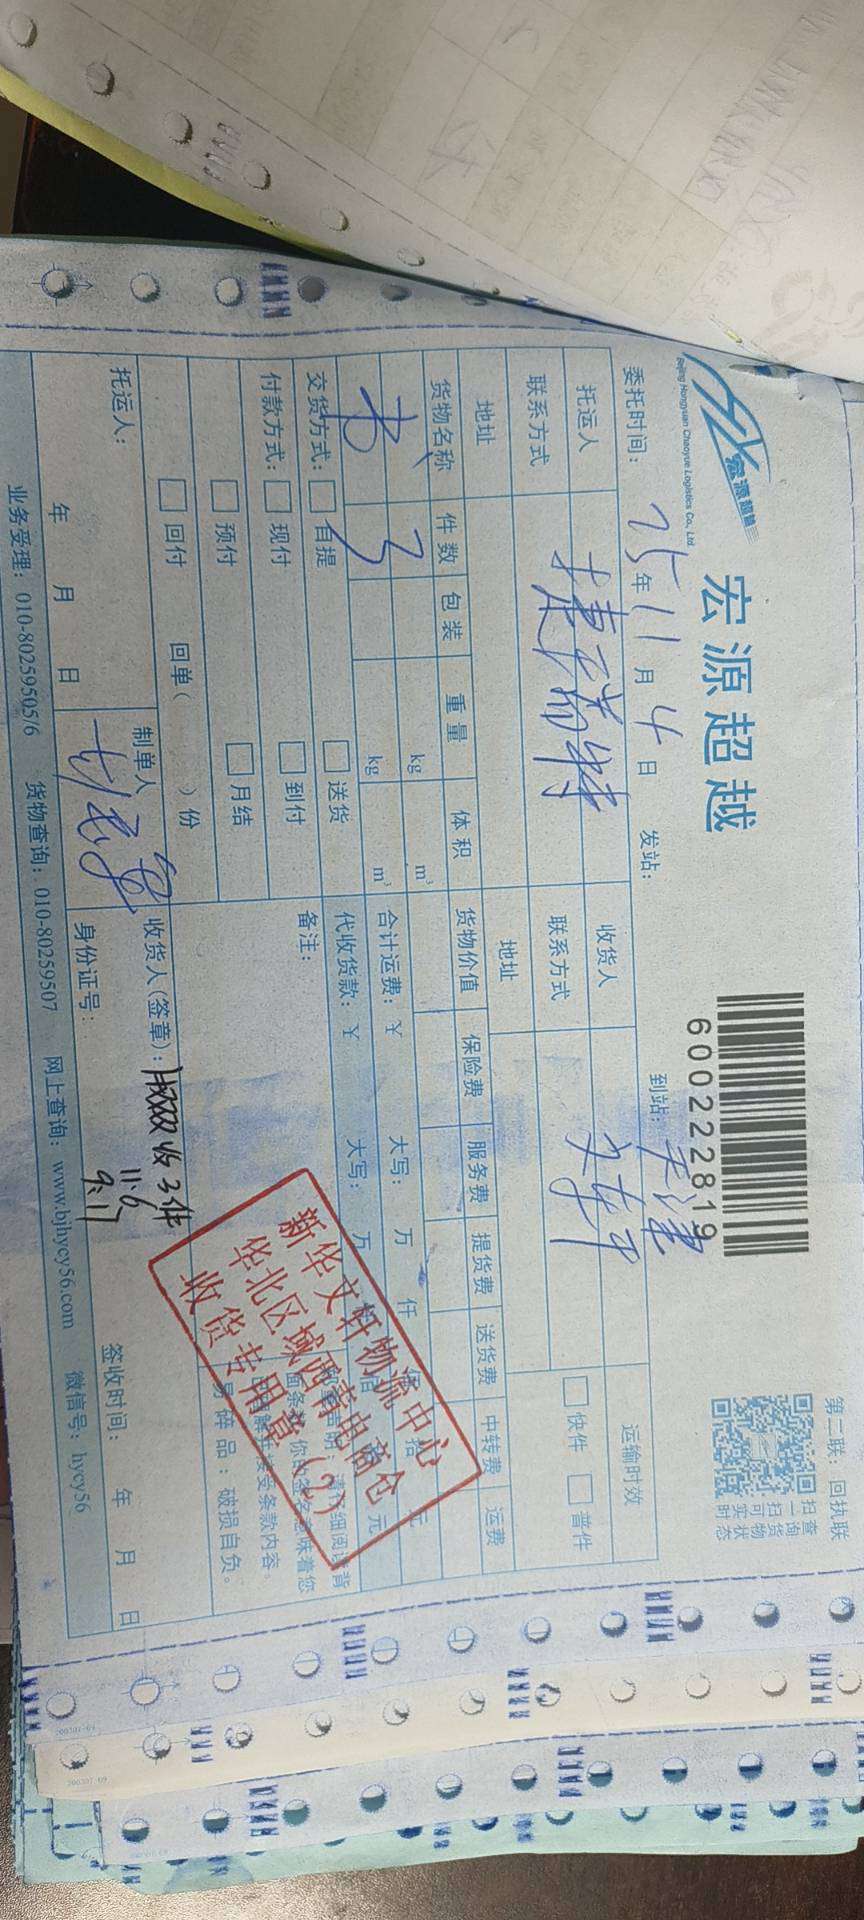 宏源超越
Beijing Hongyuan Chaoyue Logistics Co., Ltd
宏源超越
6000222819
第二联：回执联
扫一扫可实时
查询货物状态
委托时间： 25年 11月 4日 发站： 到站：天津
托运人 捷瑞特 收货人 文轩 运输时效
联系方式 联系方式 快件 普件
地址 地址
货物名称 件数 包装 重量 体积 货物价值 保险费 服务费 提货费 送货费 中转费 运费
书 3 kg m³ 合计运费：¥ 大写： 万 仟 佰 拾 元
kg m³ 代收货款：¥ 大写： 万 仟 佰 拾 元
交货方式： 自提 送货 备注：
付款方式： 现付 到付
预付 月结
回付 回单（ ）份
易碎品：破损自负。
新华文轩物流中心
华北区域西青电商仓
收货专用章（2）
托运人： 制单人 收货人（签章）： 收3件
11.6
9:17
年 月 日 身份证号： 签收时间： 年 月 日
业务受理：010-80259505/6 货物查询：010-80259507 网上查询：www.bjhycy56.com 微信号：hycy56